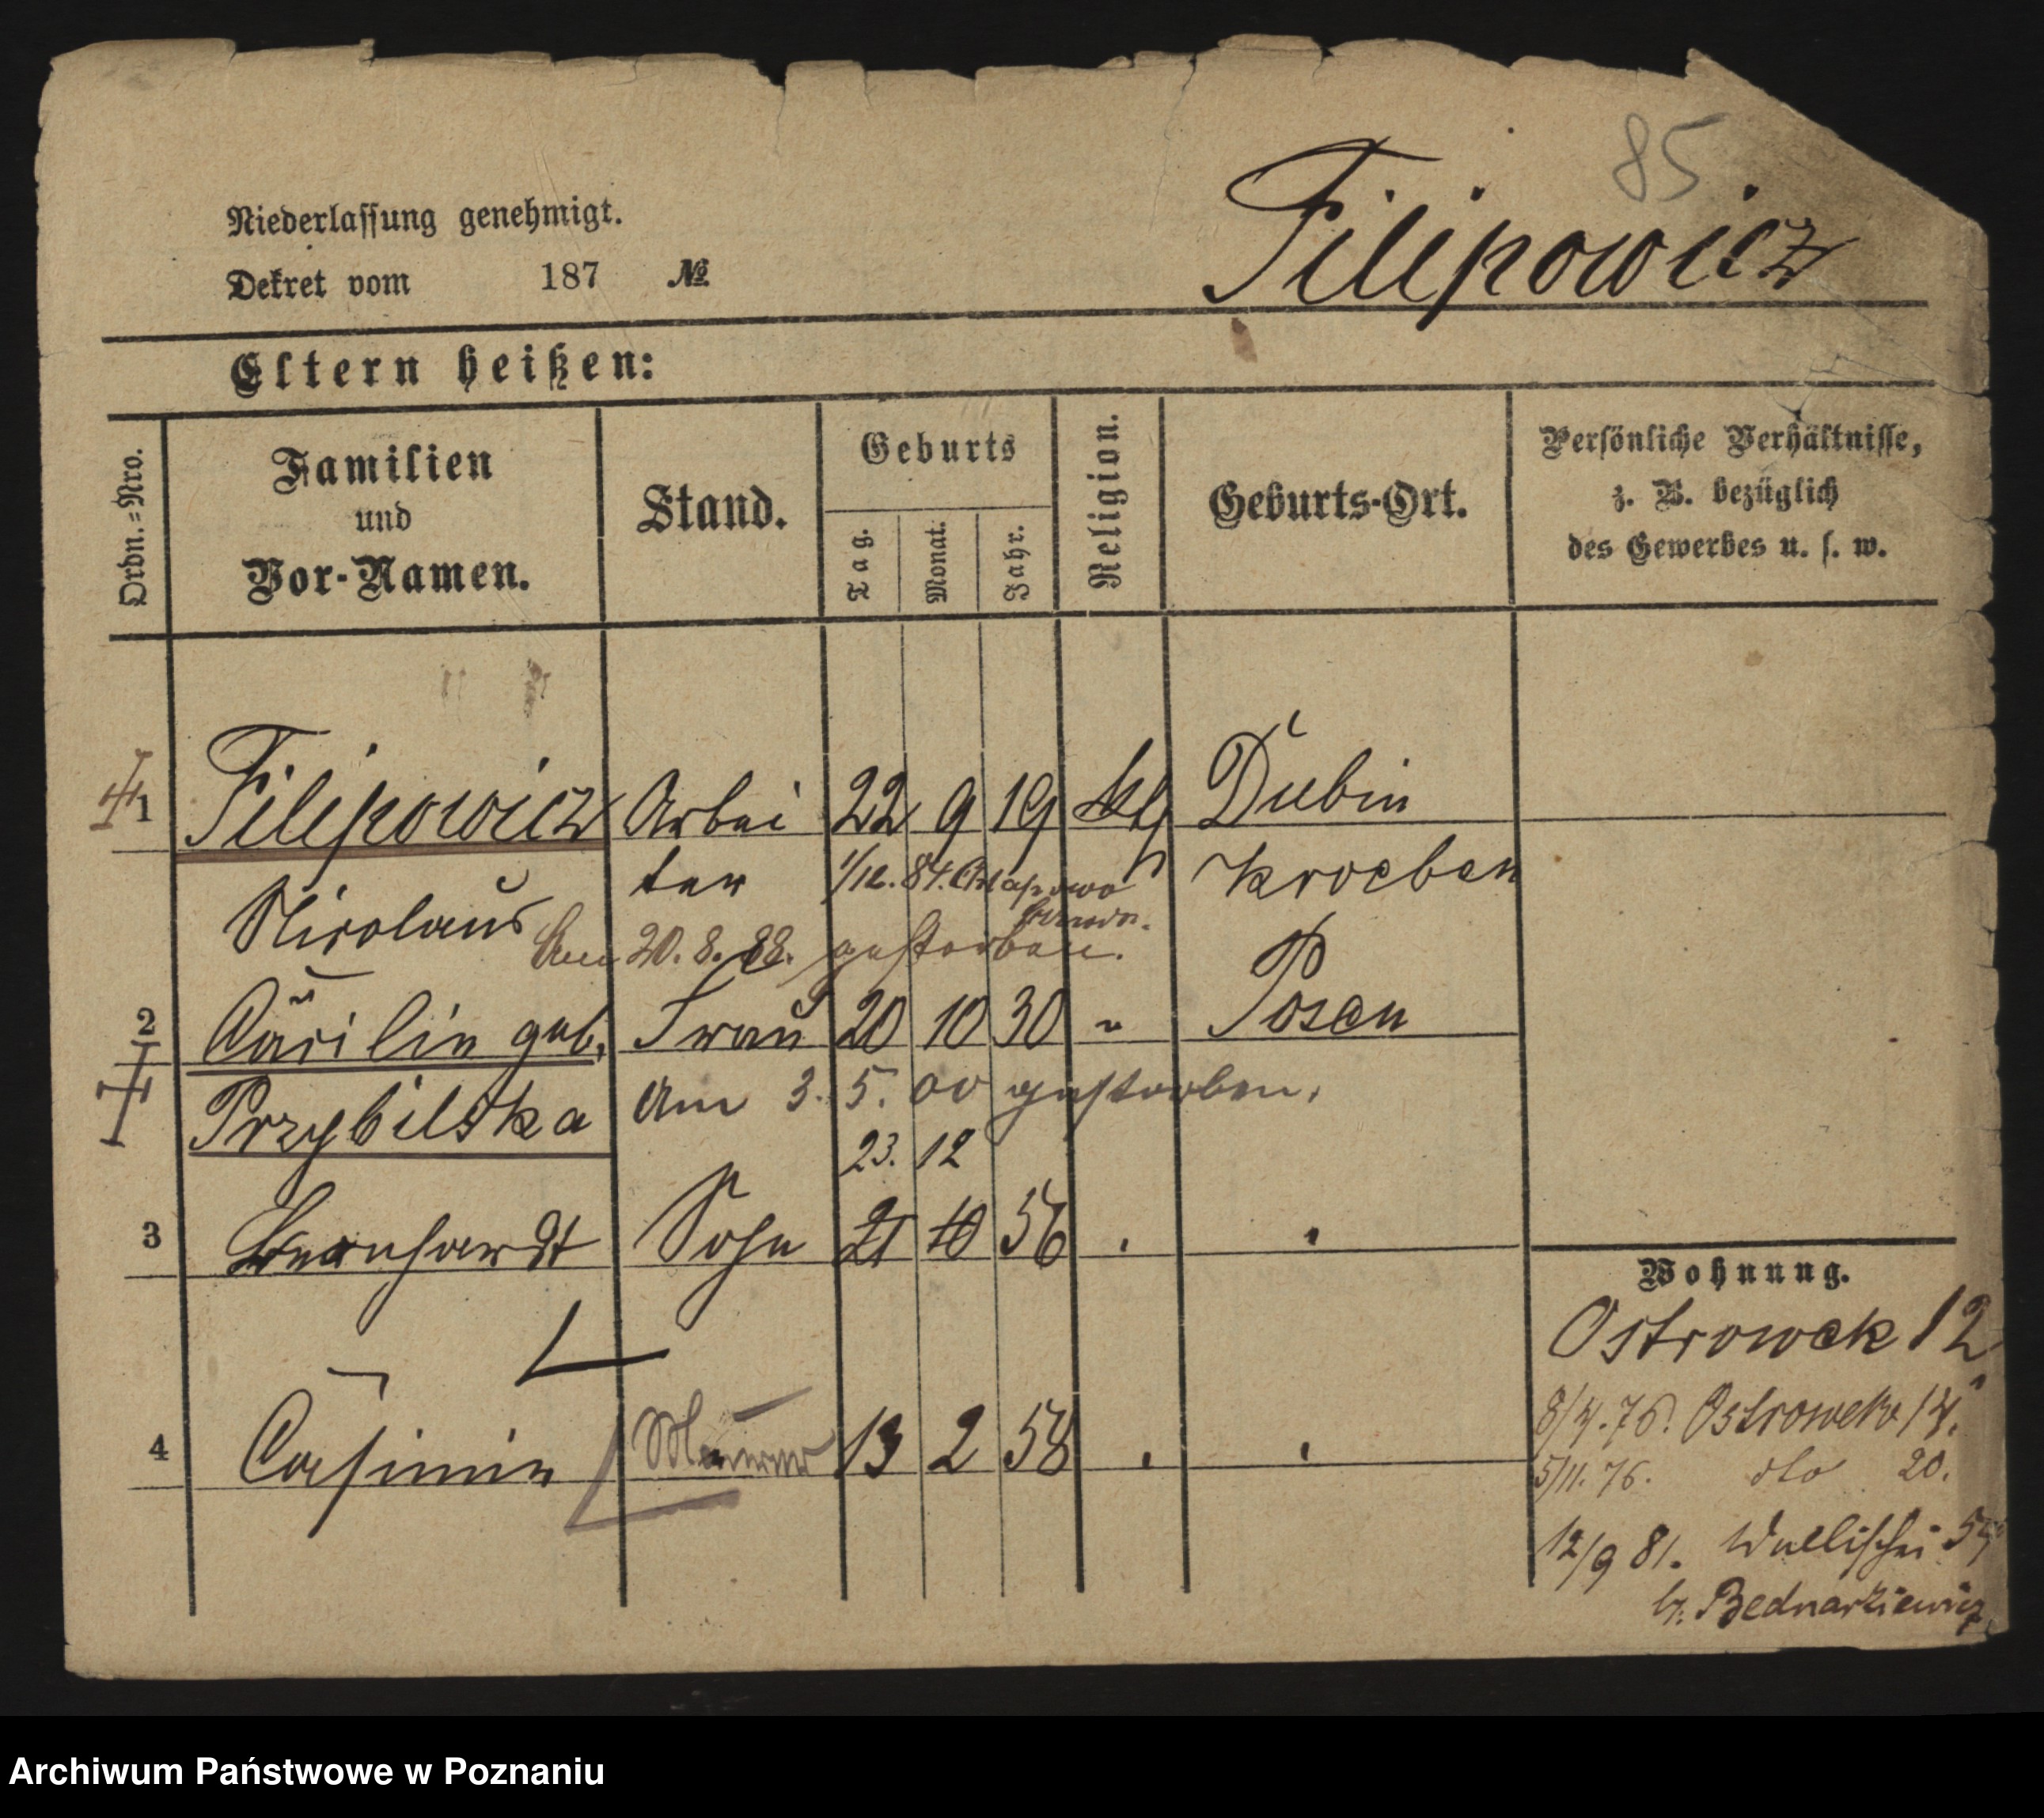 85
Filipowicz
Niederlassung genehmigt.
Dekret vom 187 №
Eltern heißen:
Ordn.=Nro.
Familien
und
Vor-Namen.
Stand.
Geburts
Tag.
Monat.
Jahr.
Religion.
Geburts-Ort.
Persönliche Verhältnisse,
z. B. bezüglich
des Gewerbes u. s. w.
1 Filipowicz Arbei 22 9 19 Dubin
Nicolaus ter 1/12. 84. Kroeben
Am 20. 8. 88. gestorben.
2 Cäcilia geb. Frau 20 10 30 " Posen
Przybilska Am 3. 5. 00 gestorben.
23. 12
3 Bernhardt Sohn 21 10 56 " "
4 Casimir Maurer 13 2 58 " "
Wohnung.
Ostrowek 12
8/4. 76. Ostrowek 14.
5/11. 76. dto 20.
12/9 81. Wallischei
b. Bednarkiewicz
Archiwum Państwowe w Poznaniu